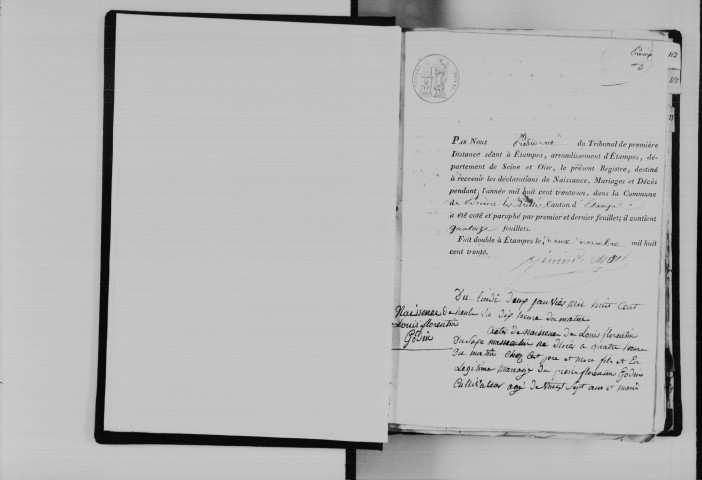 PAR NOUS Président du Tribunal de première
Instance séant à Étampes, arrondissement d'Étampes, dé-
partement de Seine et Oise, le présent Registre, destiné
à recevoir les déclarations de Naissance, Mariages et Décès
pendant l'année mil huit cent trente-un, dans la Commune
de les Canton d'Etampes
a été coté et paraphé par premier et dernier feuillets; il contient
quatorze feuillets.
Fait double à Étampes le deux novembre mil huit
cent trente.
Naissance
Louis florentin
Godin
Du lundi Deux janvier mil huit Cent
heure du matin
acte de naissance de Louis florentin
Du Sexe masculin né à quatre heure
Du matin chez Cest pere et mere fils et En
Legitime mariage de pierre florentin Godin
Cultivateur agé de Vingt Sept ans et